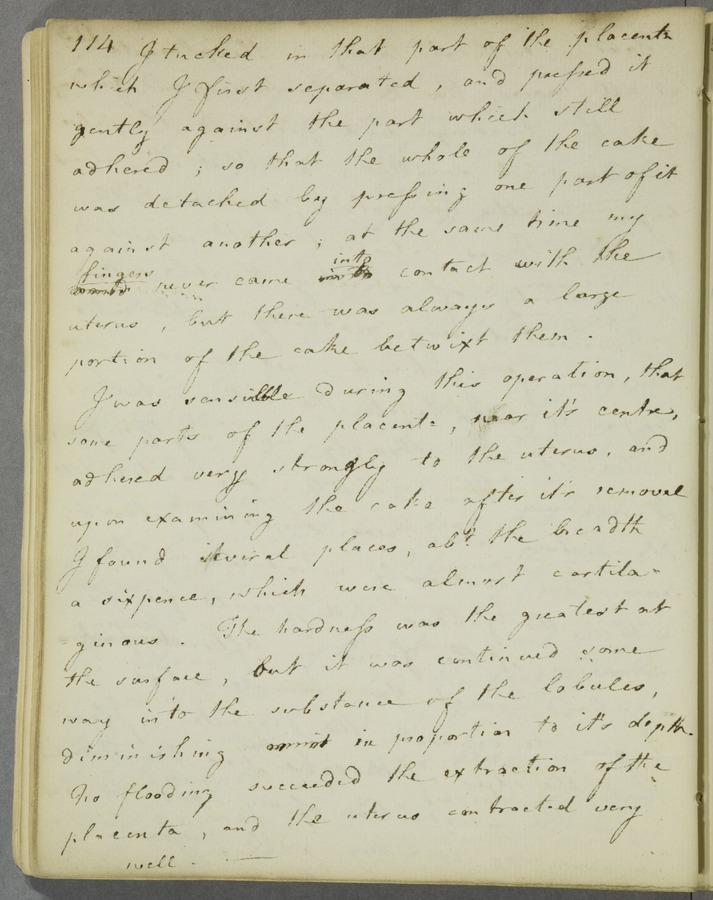 114 I tucked in that part of the placenta
which I first separated, and pressed it
gently against the part which still
adhered; so that the whole of the cake
was detached by pressing one part of it
against another; at the same time my
fingers never came into contact with the
uterus, but there was always a large
portion of the cake betwixt them.
I was sensible during this operation, that
some parts of the placenta, near it's centre,
adhered very strongly to the uterus, and
upon examining the cake after it's removal
I found several places, abt. the breadth
a sixpence, which were almost cartila=
=ginous. The hardness was the greatest at
the surface, but it was continued some
way into the substance of the lobules,
diminishing in proportion to it's depth.
No flooding succeeded the extraction of the
placenta, and the uterus contracted very
well.